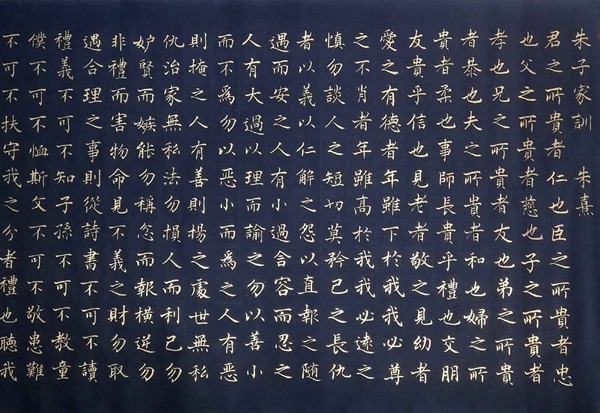 朱子家訓 朱熹
君之所貴者仁也臣之所貴者忠
也父之所貴者慈也子之所貴者
孝也兄之所貴者友也弟之所貴
者恭也夫之所貴者和也婦之所
貴者柔也事師長貴乎禮也交朋
友貴乎信也見老者敬之見幼者
愛之有德者年雖下於我我必尊
之不肖者年雖高於我我必遠之
慎勿談人之短切莫矜己之長仇
者以義以仁解之怨以直報之隨
遇而安之人有小過合容而忍之
人有大過以理而諭之勿以善小
而不爲勿以惡小而爲之人有惡
則掩之人有善則揚之處世無私
仇治家無私法勿損人而利己勿
妒賢而嫉能勿稱忿而報橫逆勿
非禮而害物命見不義之財勿取
遇合理之事則從詩書不可不讀
禮義不可不知子孫不可不教童
僕不可不恤斯文不可不敬患難
不可不扶守我之分者禮也聽我